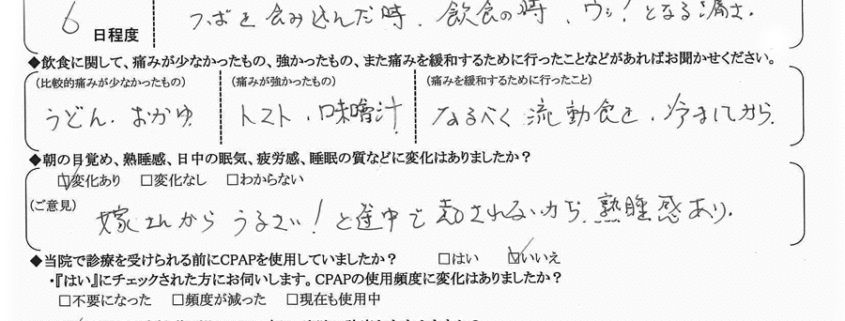 6 日程度 ツバを飲み込んだ時、飲食の時、ウッ!となる痛さ。
◆飲食に関して、痛みが少なかったもの、強かったもの、また痛みを緩和するために行ったことなどがあればお聞かせください。
(比較的痛みが少なかったもの) (痛みが強かったもの) (痛みを緩和するために行ったこと)
うどん、おかゆ トマト、味噌汁 なるべく流動食を、冷ましてから
◆朝の目覚め、熟睡感、日中の眠気、疲労感、睡眠の質などに変化はありましたか?
☑変化あり □変化なし □わからない
(ご意見) 嫁さんから うるさい!と途中で起されないから、熟睡感あり。
◆当院で診療を受けられる前にCPAPを使用していましたか? □はい ☑いいえ
・『はい』にチェックされた方にお伺いします。CPAPの使用頻度に変化はありましたか?
□不要になった □頻度が減った □現在も使用中